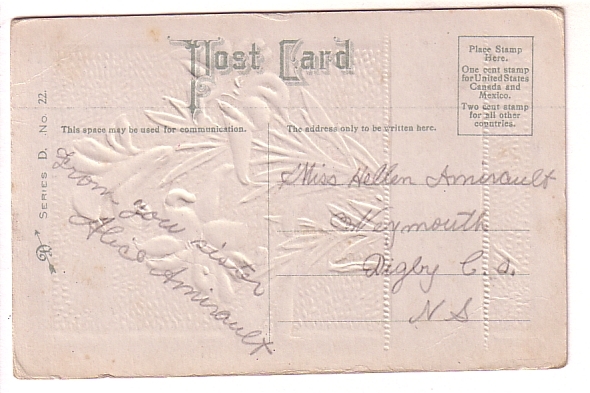 Post Card
Place Stamp
Here.
One cent stamp
for United States
Canada and
Mexico.
Two cent stamp
for all other
countries.
This space may be used for communication.
The address only to be written here.
SERIES D. No 22.
From you sister
Alice Amirault
Miss Hellen Amirault
Weymouth
Digby C.o.
N S